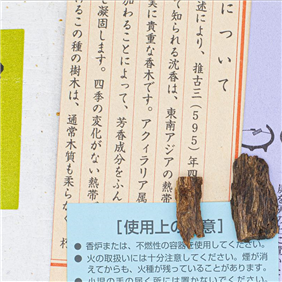 について
述により、推古三(595)年四
て知られる沈香は、東南アジアの熱帯
実に貴重な香木です。アクィラリア属
加わることによって、芳香成分をふん
し凝固します。四季の変化がない熱帯
るこの種の樹木は、通常木質も柔らかく
[使用上の 意]
● 香炉または、不燃性の容器を使用してください。
● 火の取扱いには十分注意してください。煙が消
えてからも、火種が残っていることがあります。
● 小児の手の届く所には置かないでください。